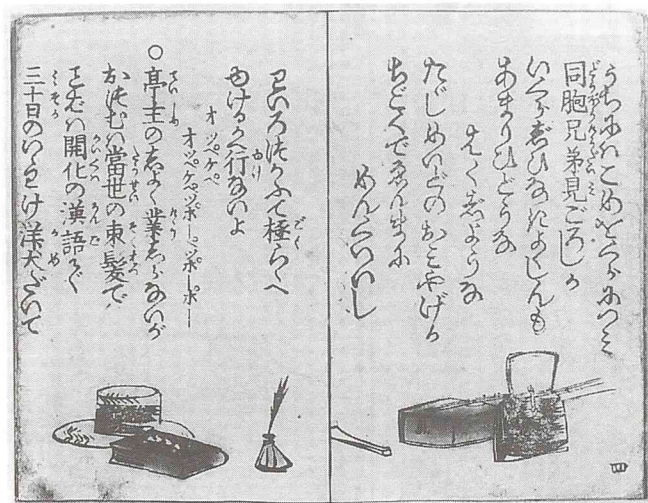 うちにハこめをくらにつミ
同胞兄弟見ごろしか
いくらじひなきよくしんも
あまりひどうな
はくじような
たじめいどのおミやげか
ちごくでゑんまに
めんくわいし
四
わいろつかふて極らくへ
ゆけるかへ行ないよ
オツペケペ
オツペケペツポーペツポーポー
○亭主のしよく業しらないが
おつむハ當世の束髪で
ことばハ開化の漢語にて
三十日のいゝわけ洋犬だいて